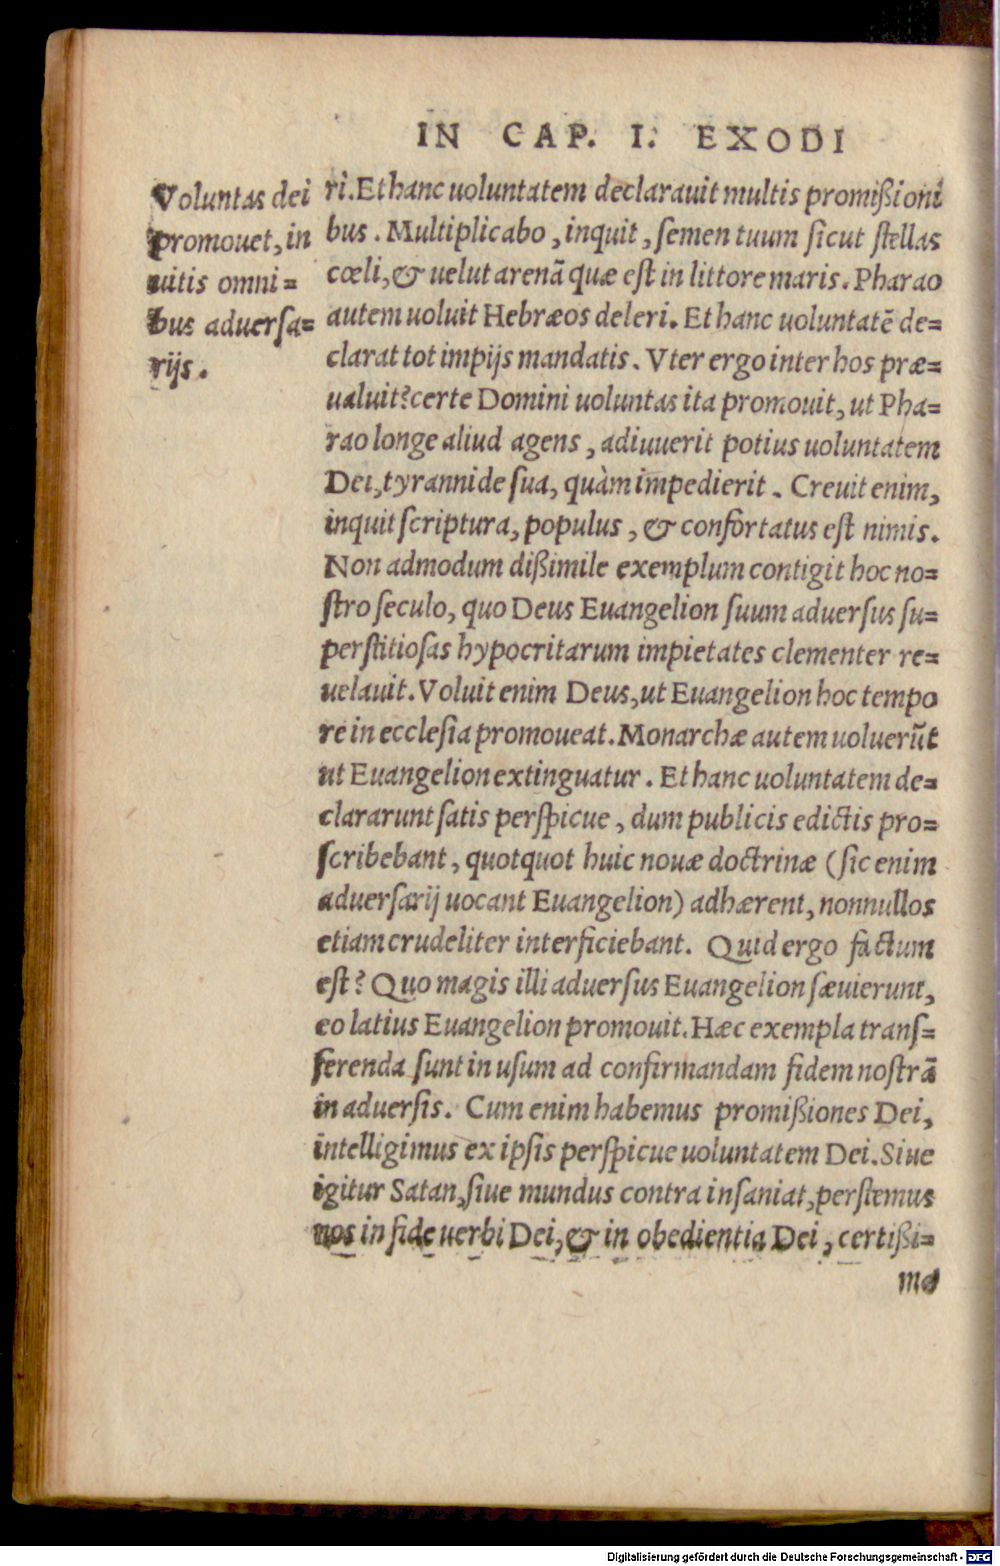 IN CAP. I. EXODI
Voluntas dei
promouet, in
uitis omni=
bus aduersa=
rijs.
ri. Et hanc uoluntatem declarauit multis promißioni
bus. Multiplicabo, inquit, semen tuum sicut stellas
cœli, & uelut arenā quæ est in littore maris. Pharao
autem uoluit Hebræos deleri. Et hanc uoluntatē de=
clarat tot impijs mandatis. Vter ergo inter hos præ=
ualuit? certe Domini uoluntas ita promouit, ut Pha=
rao longe aliud agens, adiuuerit potius uoluntatem
Dei, tyrannide sua, quàm impedierit. Creuit enim,
inquit scriptura, populus, & confortatus est nimis.
Non admodum dißimile exemplum contigit hoc no=
stro seculo, quo Deus Euangelion suum aduersus su=
perstitiosas hypocritarum impietates clementer re=
uelauit. Voluit enim Deus, ut Euangelion hoc tempo
re in ecclesia promoueat. Monarchæ autem uoluerūt
ut Euangelion extinguatur. Et hanc uoluntatem de=
clararunt satis perspicue, dum publicis edictis pro=
scribebant, quotquot huic nouæ doctrinæ (sic enim
aduersarij uocant Euangelion) adhærent, nonnullos
etiam crudeliter interficiebant. Quid ergo factum
est? Quo magis illi aduersus Euangelion sæuierunt,
eo latius Euangelion promouit. Hæc exempla trans=
ferenda sunt in usum ad confirmandam fidem nostrā
in aduersis. Cum enim habemus promißiones Dei,
intelligimus ex ipsis perspicue uoluntatem Dei. Siue
igitur Satan, siue mundus contra insaniat, perstemus
nos in fide uerbi Dei, & in obedientia Dei, certißi=
me
Digitalisierung gefördert durch die Deutsche Forschungsgemeinschaft - DFG